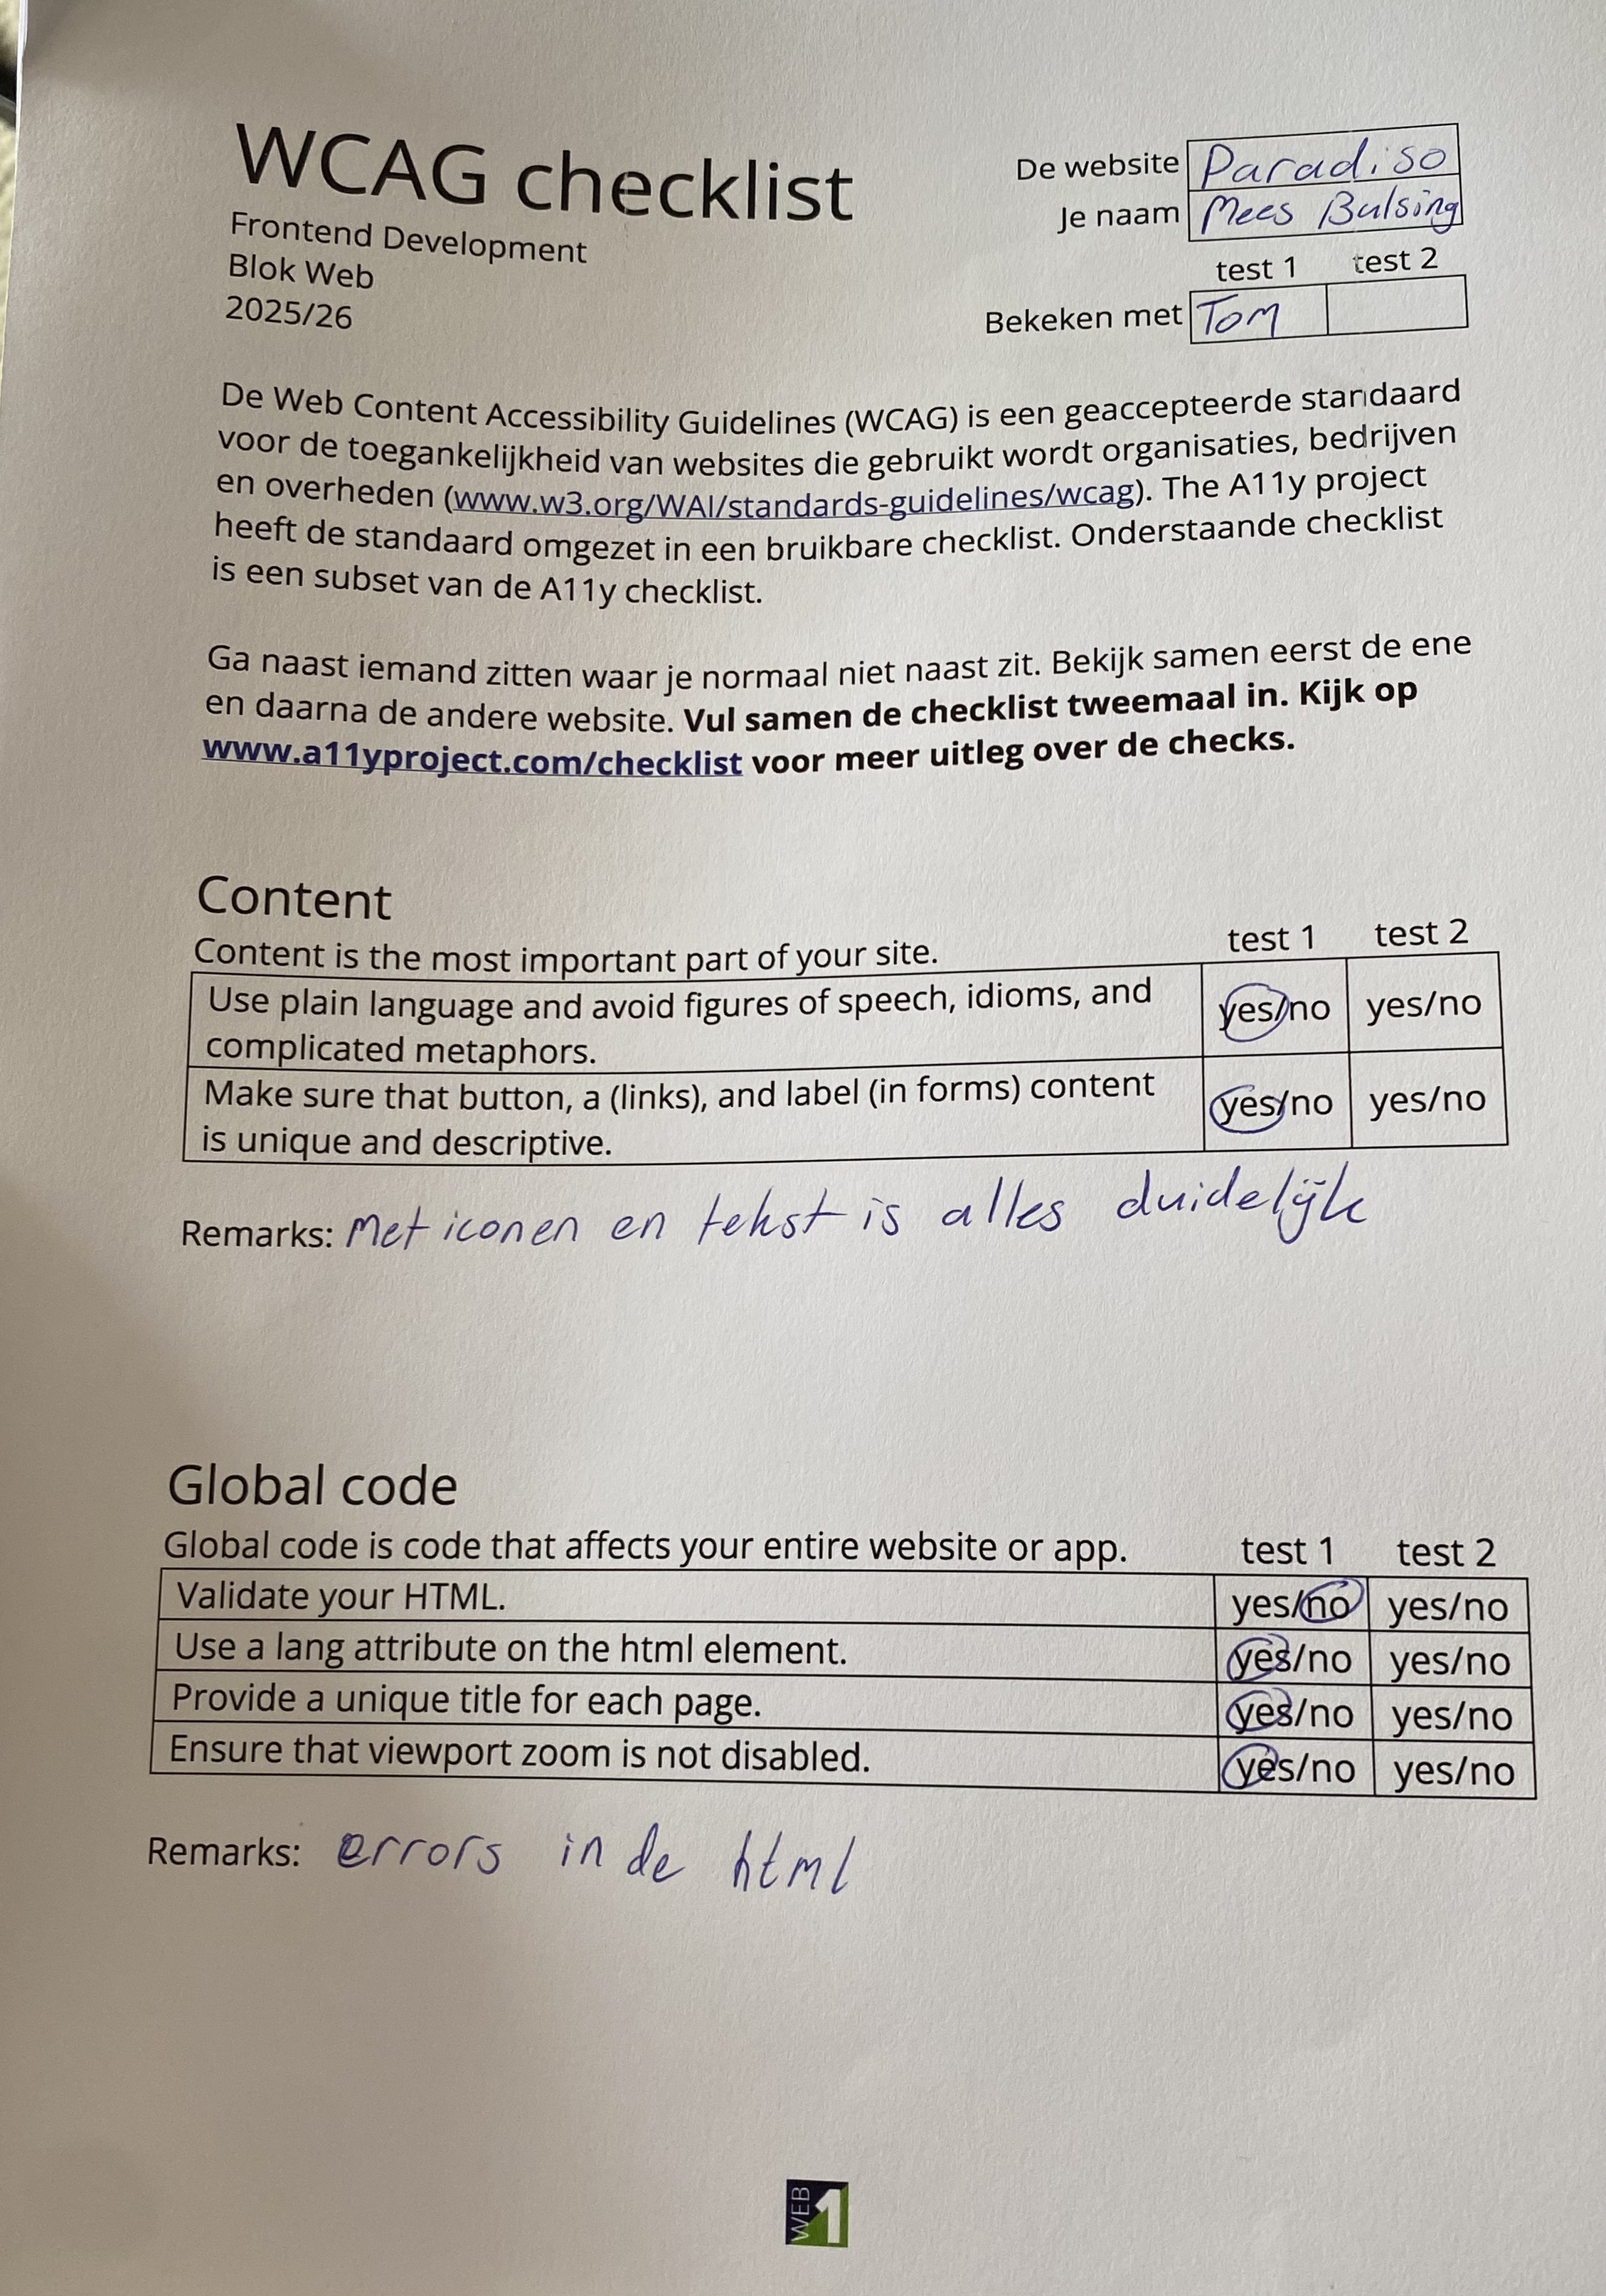 WCAG checklist
Frontend Development
Blok Web
2025/26
De website Paradiso
Je naam Mees Bulsing
test 1 test 2
Bekeken met Tom
De Web Content Accessibility Guidelines (WCAG) is een geaccepteerde standaard
voor de toegankelijkheid van websites die gebruikt wordt organisaties, bedrijven
en overheden (www.w3.org/WAI/standards-guidelines/wcag). The A11y project
heeft de standaard omgezet in een bruikbare checklist. Onderstaande checklist
is een subset van de A11y checklist.
Ga naast iemand zitten waar je normaal niet naast zit. Bekijk samen eerst de ene
en daarna de andere website. Vul samen de checklist tweemaal in. Kijk op
www.a11yproject.com/checklist voor meer uitleg over de checks.
Content
Content is the most important part of your site. test 1 test 2
Use plain language and avoid figures of speech, idioms, and
complicated metaphors. yes/no yes/no
Make sure that button, a (links), and label (in forms) content
is unique and descriptive. yes/no yes/no
Remarks: Met iconen en tekst is alles duidelijk
Global code
Global code is code that affects your entire website or app. test 1 test 2
Validate your HTML. yes/no yes/no
Use a lang attribute on the html element. yes/no yes/no
Provide a unique title for each page. yes/no yes/no
Ensure that viewport zoom is not disabled. yes/no yes/no
Remarks: errors in de html
WEB 1